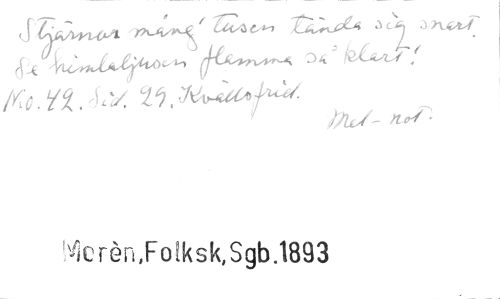 Stjärnor mång' tusen tända sig snart.
Se himlaljusen flamma så klart!
No. 42. Sid. 29. Kvällsfrid.
Mel-not.
Morèn,Folksk,Sgb.1893